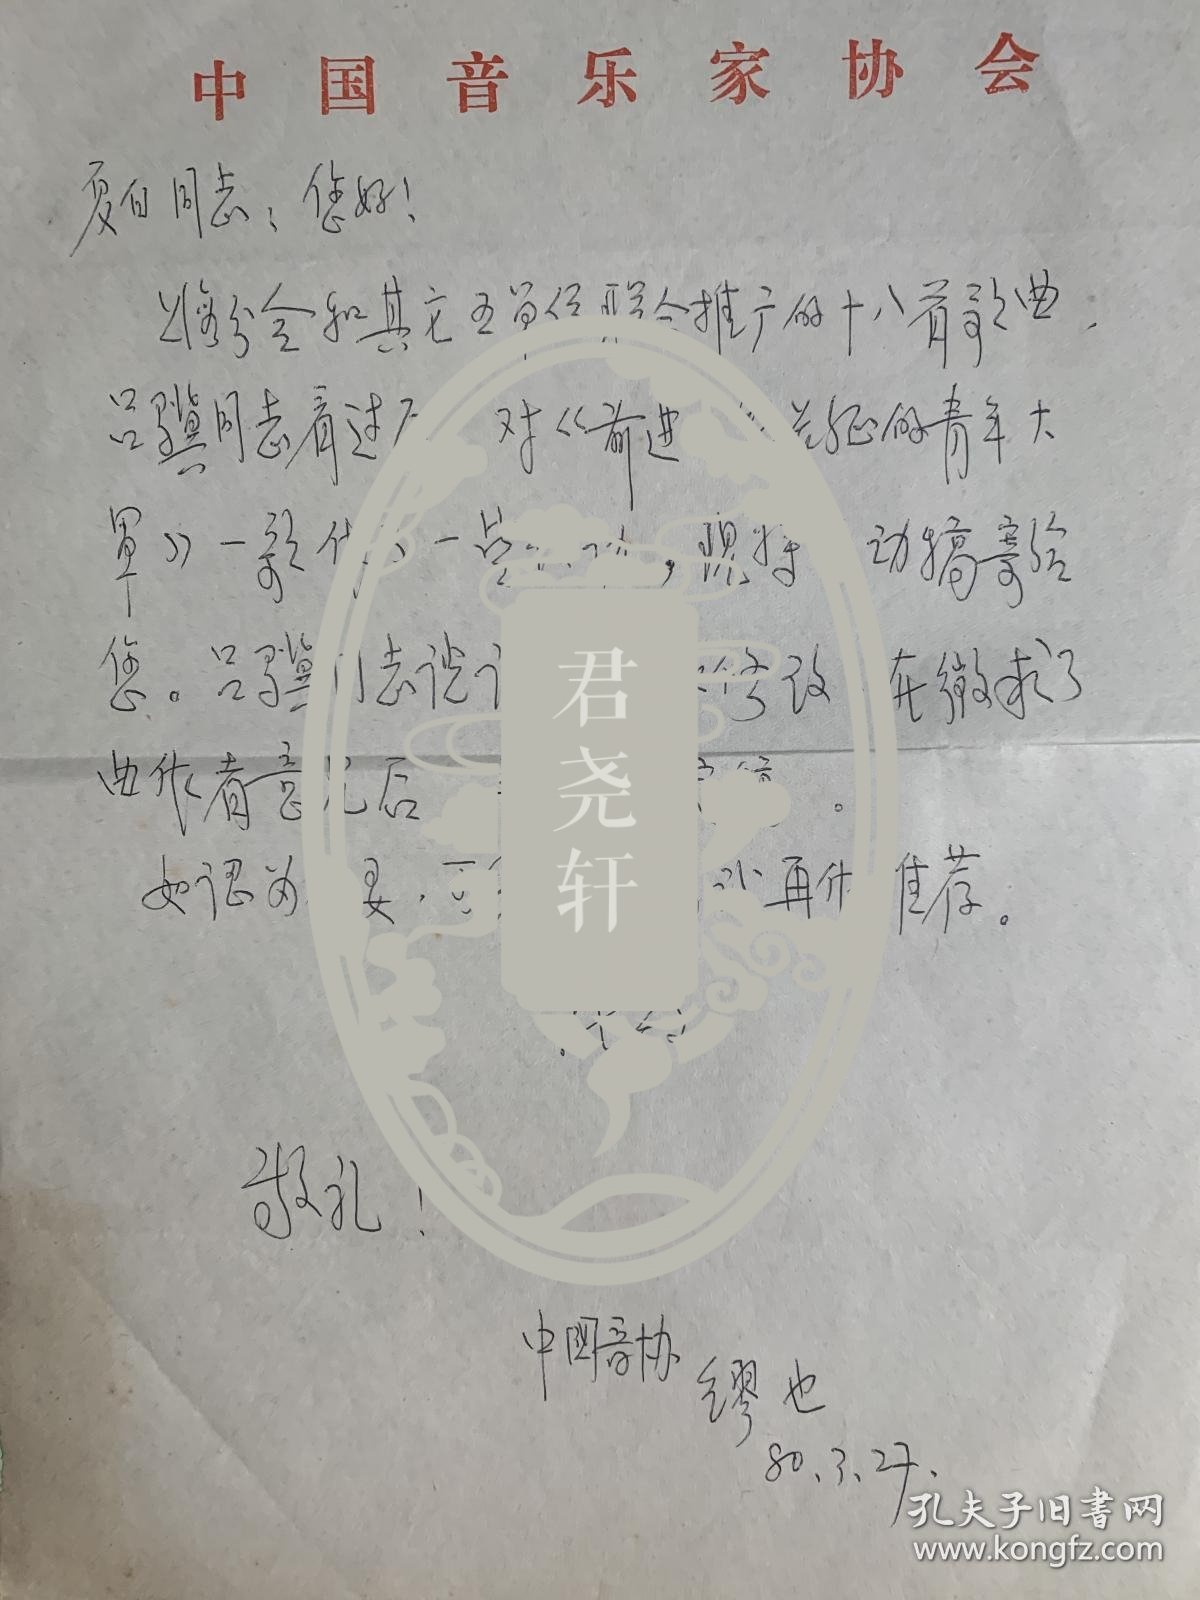 中国音乐家协会
夏白同志：您好！
上海分会和其它五单位联合推广的十八首歌曲，
吕骥同志看过后 对《前进 长征的青年大
军》一歌作了一些 现将 动稿寄给
您。吕骥同志说 修改 在徵求了
曲作者意见后
如认为 要，可 再作 推荐。
敬礼！
中国音协
缪也
80.3.27.
君尧轩
孔夫子旧书网
www.kongfz.com